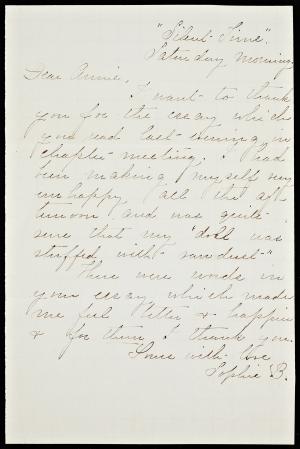 "Silent Time".
Saturday Morning.
Dear Annie,
I want to thank
you for the essay which
you read last evening in
chapter meeting. I had
been making myself very
unhappy all the af-
ternoon and was quite
sure that my "doll was
stuffed with sawdust"
There were words in
your essay which made
me feel better & happier
& for them I thank you.
Yours with love
Sophie B.